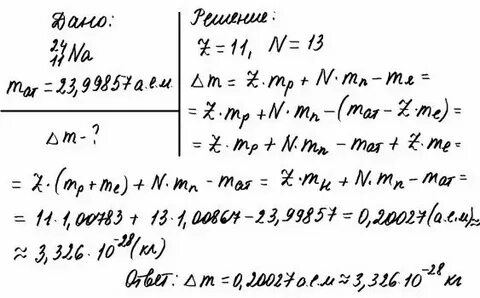 Дано:
²⁴₁₁Na
mат = 23,99857 а.е.м.
Δm - ?
Решение:
Z = 11, N = 13
Δm = Z·mp + N·mn - mя =
= Z·mp + N·mn - (mат - Z·me) =
= Z·mp + N·mn - mат + Z·me =
= Z·(mp + me) + N·mn - mат = Z·mH + N·mn - mат =
= 11·1,00783 + 13·1,00867 - 23,99857 = 0,20027 (а.е.м) ≈
≈ 3,326·10⁻²⁸ (кг)
Ответ: Δm = 0,20027 а.е.м ≈ 3,326·10⁻²⁸ кг